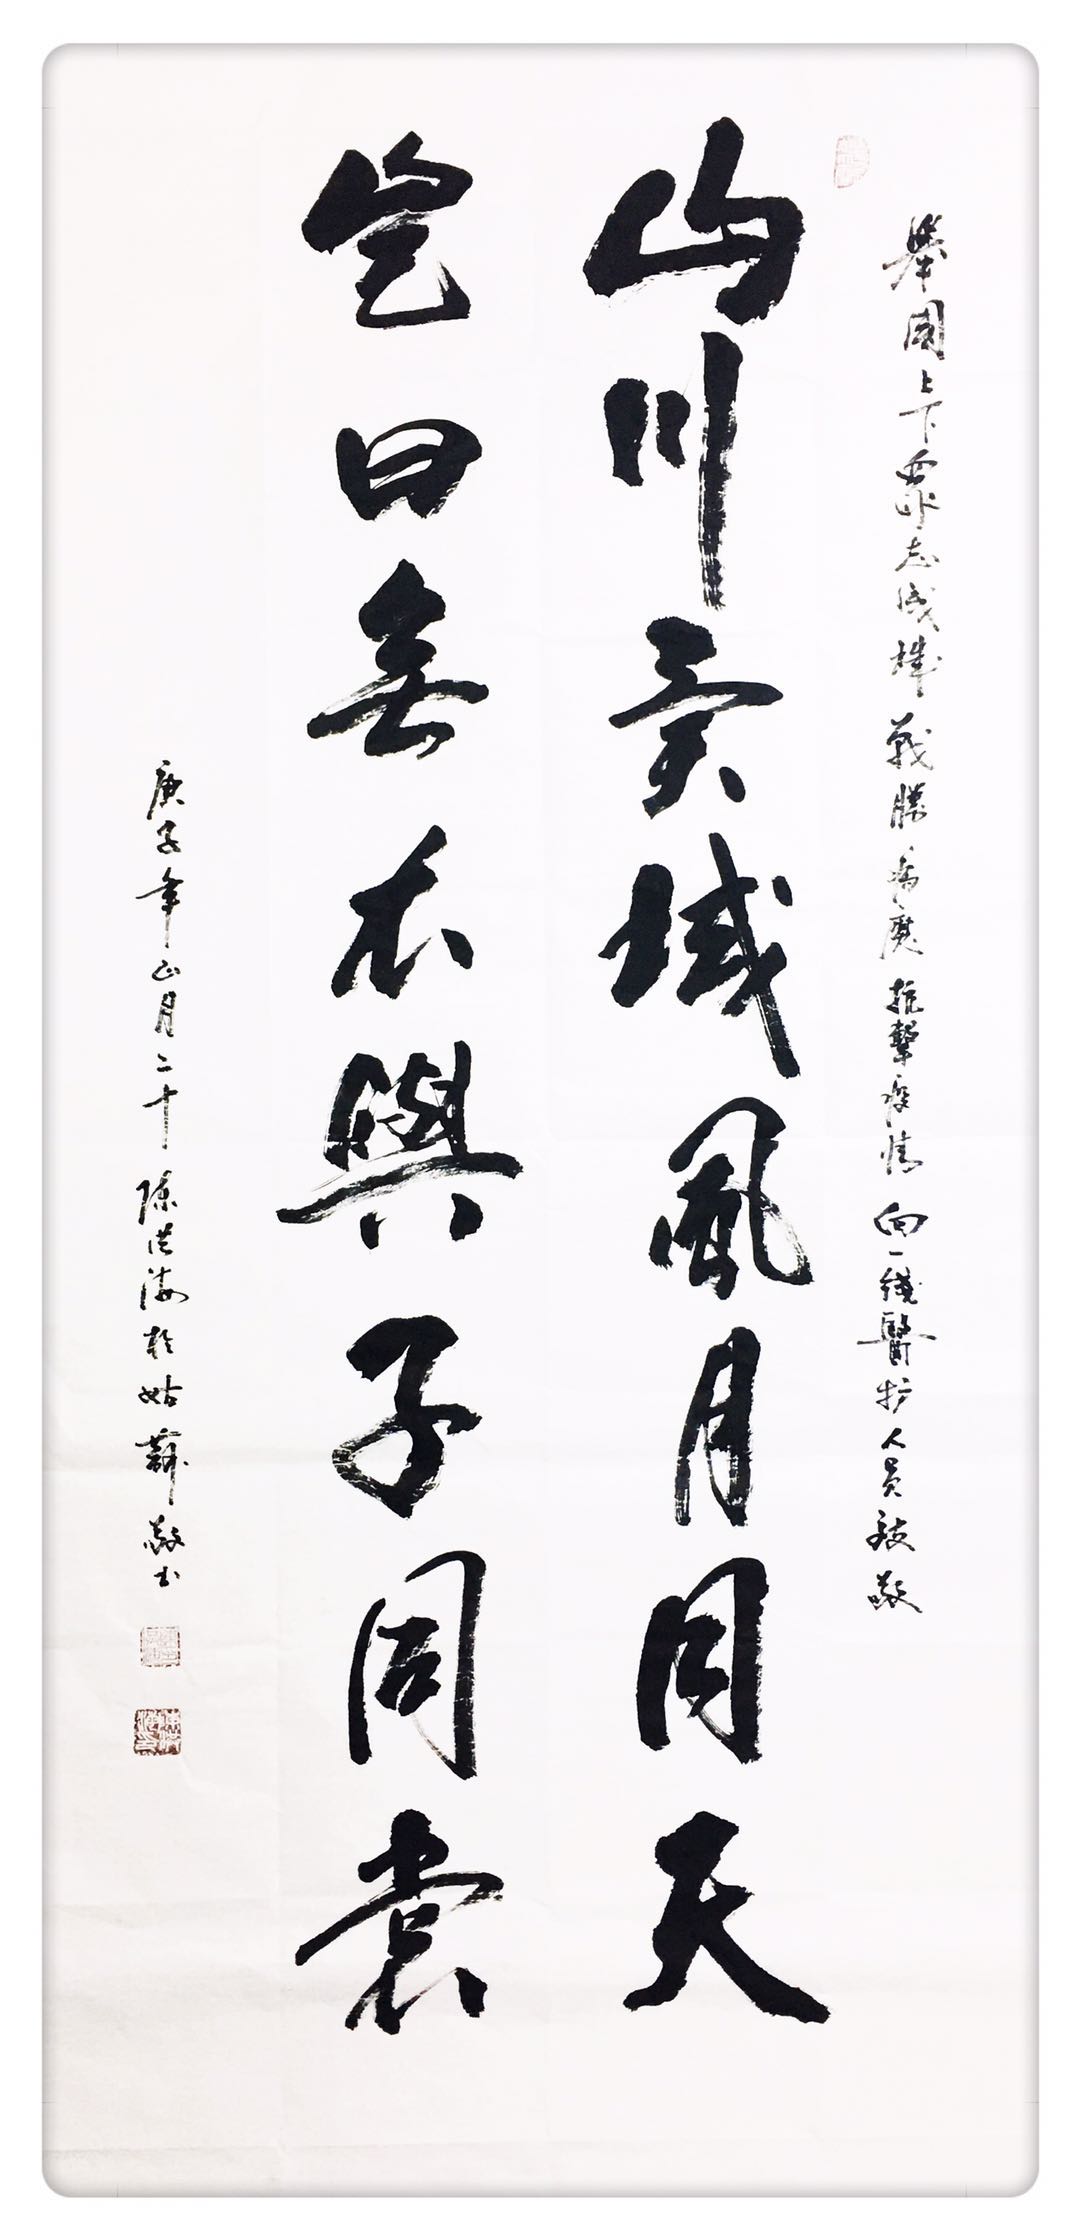 舉國上下眾志成城戰勝病魔抗擊疫情向一綫醫护人员致敬
山川異域風月同天
豈曰無衣與子同裳
庚子年正月二十陳洪海於姑蘇敬书